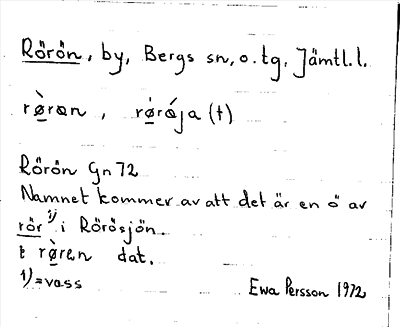 Rörön, by, Bergs sn, o. tg. Jämtl. l.
rø̀ran, rø̀rǿja (t)
Rörön Gn 72
Namnet kommer av att det är en ö av
rör 1) i Rörösjön.
t rø̀ren dat.
1) = vass
Ewa Persson 1972